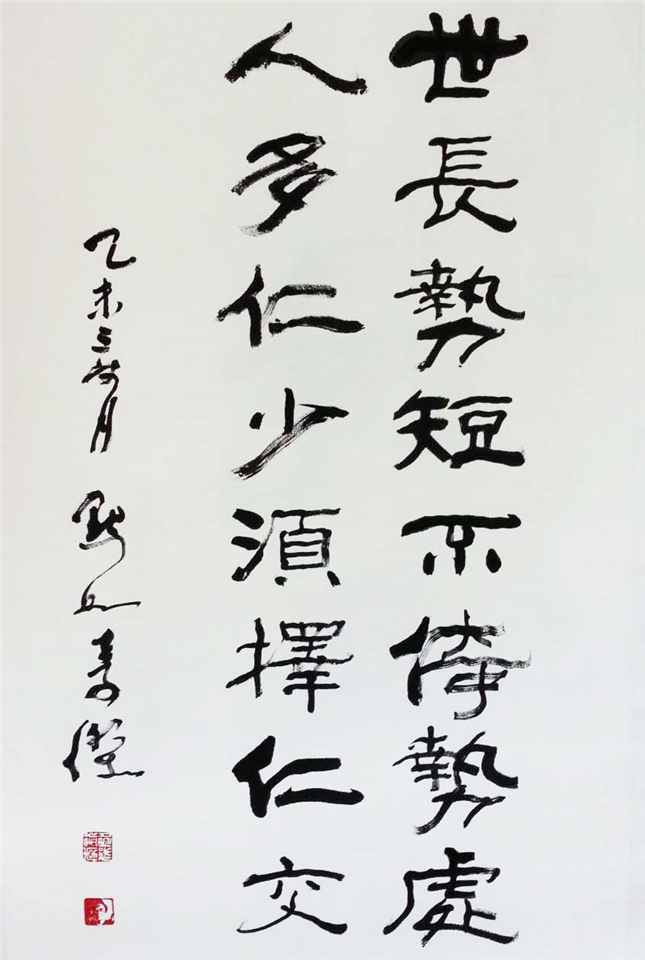 世長勢短不倚勢處
人多仁少須擇仁交
乙未三月